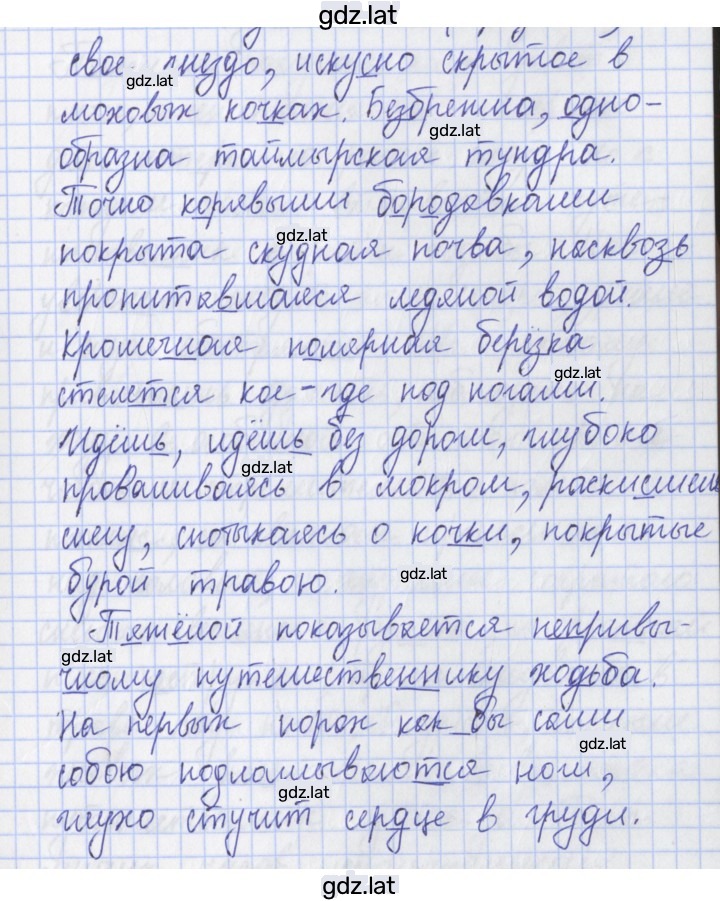 gdz.lat
свое гнездо, искусно скрытое в
gdz.lat
моховых кочках. Безбрежна, одно-
gdz.lat
образна таймырская тундра.
Точно корявыми бородавками
gdz.lat
покрыта скудная почва, насквозь
пропитавшаяся ледяной водой.
gdz.lat
Крошечная полярная берёзка
gdz.lat
стелется кое-где под ногами.
Идёшь, идёшь без дорог, глубоко
gdz.lat
проваливаясь в мокром,
снегу, спотыкаясь о кочки, покрытые
gdz.lat
бурой травою.
Тяжёлой показывается непривы-
gdz.lat
чному путешественнику ходьба.
На первых порах как бы сами
gdz.lat
собою подламываются ноги,
gdz.lat
глухо стучит сердце в груди.
gdz.lat